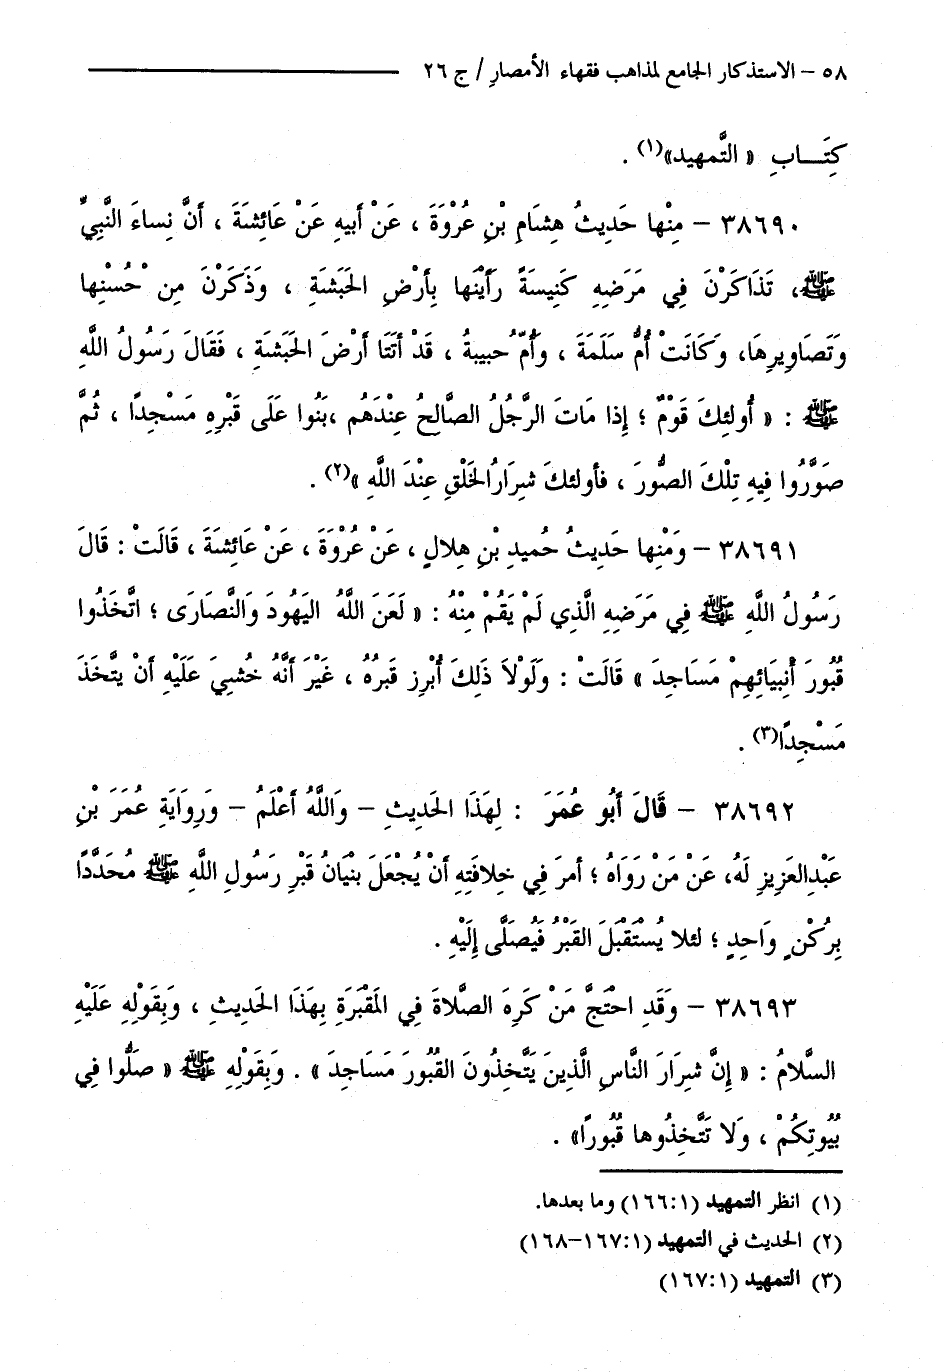 ٥٨ – الاستذكار الجامع لمذاهب فقهاء الأمصار / ج ٢٦
كِتَــابِ « التَّمهيد»(١) .
٣٨٦٩٠ – مِنْها حَديثُ هِشَامِ بْنِ عُرْوَةَ ، عَنْ أَبيهِ عَنْ عَائِشَةَ ، أَنَّ نِساءَ النَّبيِّ
ﷺ، تَذَاكَرْنَ فِي مَرَضِهِ كَنِيسَةً رَأَيْنَها بِأَرْضِ الحَبَشَةِ ، وَذَكَرْنَ مِن ْ حُسْنِها
وَتَصَاوِيرِهَا، وَكَانَتْ أُمُّ سَلَمَةَ ، وَأُمّ ُحبيبةُ ، قَدْ أَتَتَا أَرْضَ الحَبَشَةِ ، فَقَالَ رَسُولُ اللَّهِ
ﷺ : « أُولئِكَ قَوْمٌ ؛ إِذا مَاتَ الرَّجُلُ الصَّالِحُ عِنْدَهُم ،بَنُوا عَلَى قَبْرِهِ مَسْجِدًا ، ثُمَّ
صَوَّرُوا فِيهِ تِلْكَ الصُّورَ ، فَأُولئكَ شِرَارُ الخَلْقِ عِنْدَ اللَّهِ »(٢) .
٣٨٦٩١ – وَمْنِها حَدِيثُ حُميدِ بْنِ هِلالٍ ، عَنْ عُرْوَةَ ، عَنْ عَائِشَةَ ، قَالَتْ : قَالَ
رَسُولُ اللَّهِ ﷺ فِي مَرَضِهِ الَّذِي لَمْ يَقُمْ مِنْهُ : « لَعَنَ اللَّهُ اليَهُودَ وَالنَّصَارَى ؛ اتَّخَذُوا
قُبُورَ أَنْبِيَائِهِمْ مَسَاجِدَ » قَالَتْ : وَلَوْلاَ ذَلِكَ أُبْرِز قَبرُهُ ، غَيْرَ أَنَّهُ خُشيَ عَلَيْهِ أَنْ يتَّخَذَ
مَسْجِدًا(٣) .
٣٨٦٩٢ – قَالَ أَبُو عُمَرَ : لِهَذَا الحَدِيثِ – وَاللَّهُ أَعْلَمُ – وَرِوَايَةِ عُمَرَ بْنِ
عَبْدِالعَزِيزِ لَهُ، عَنْ مَنْ رَوَاهُ ؛ أَمرَ فِي خِلافَتِهِ أَنْ يُجْعَلَ بنْيَانُ قَبْرِ رَسُولِ اللَّهِ ﷺ مُحَدَّدًا
بِرُكْنٍ وَاحِدٍ ؛ لئلا يُسْتَقْبَلَ القَبْرُ فَيُصَلَّى إِلَيْهِ .
٣٨٦٩٣ – وَقَدِ احْتَجَّ مَنْ كَرِهَ الصَّلاةَ فِي المَقْبَرَةِ بِهَذَا الحَدِيثِ ، وَبِقَوْلِهِ عَلَيْهِ
السَّلامُ : « إِنَّ شِرَارَ النَّاسِ الَّذِينَ يَتَّخِذُونَ القُبُورَ مَسَاجِدَ » . وَبِقَوْلِهِ ﷺ « صَلُّوا فِي
بُيُوتِكُمْ ، وَلا تَتَّخِذُوها قُبُورًا» .
(١) انظر التمهيد (١٦٦:١) وما بعدها.
(٢) الحديث في التمهيد (١٦٧:١–١٦٨)
(٣) التمهيد (١٦٧:١)